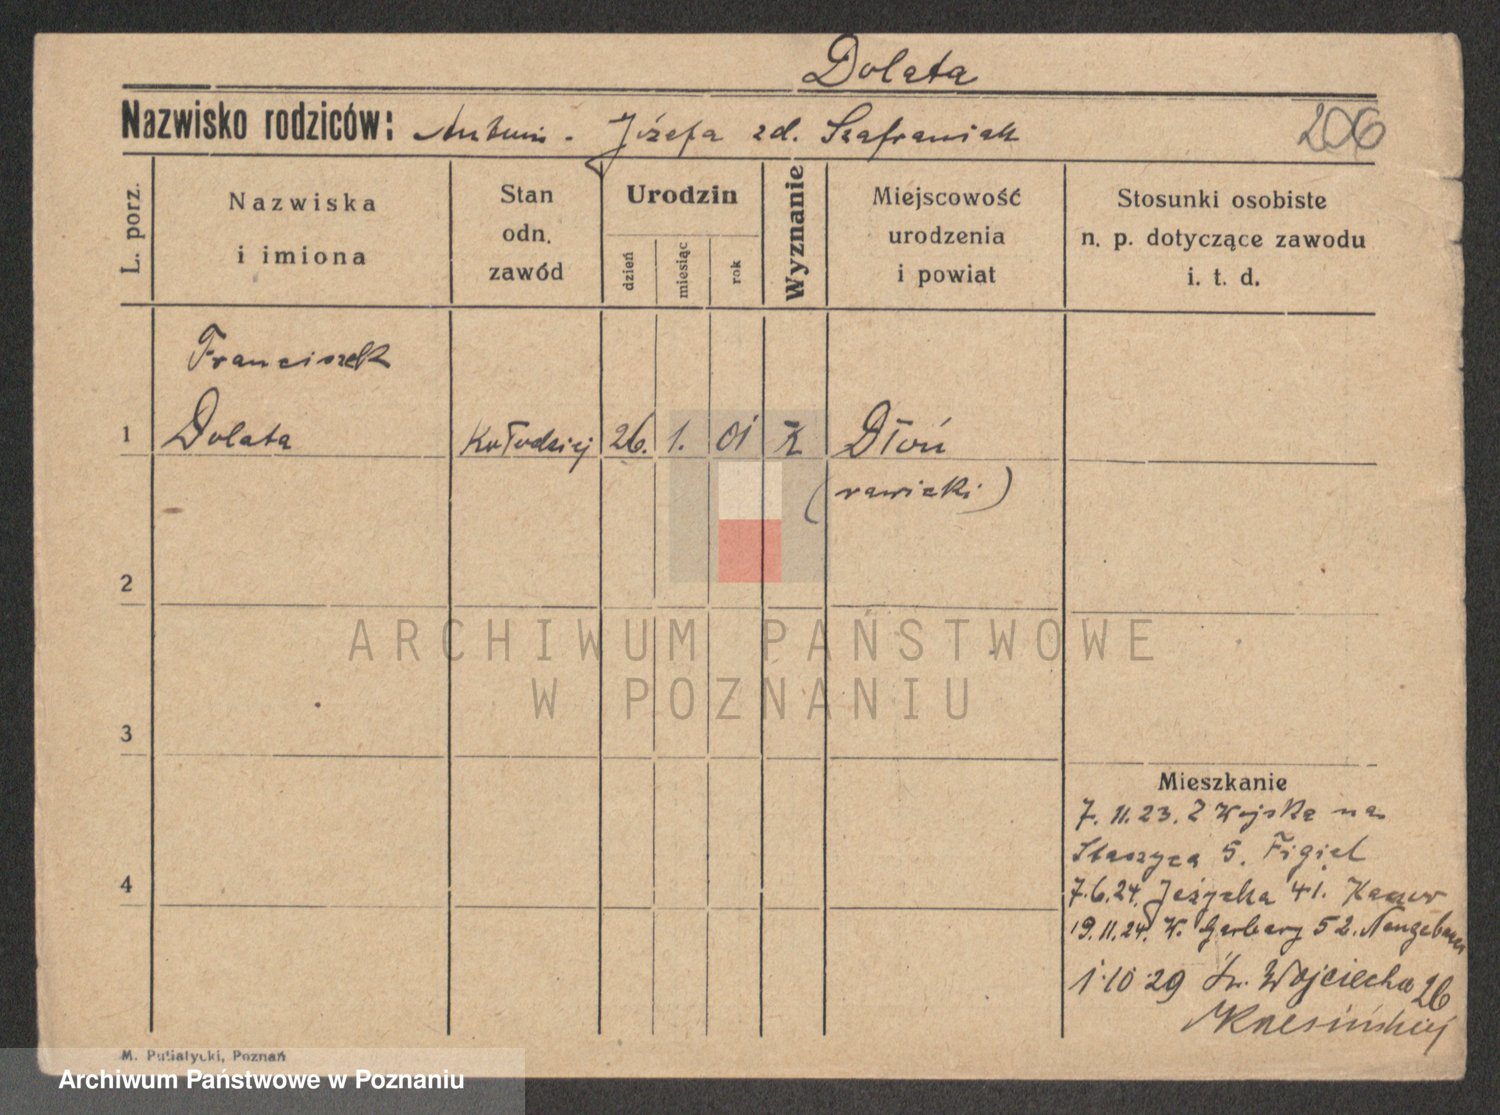 Dolata
Nazwisko rodziców: Antoni - Józefa zd. Szafraniak 206
L. porz.
Nazwiska
i imiona
Stan
odn.
zawód
Urodzin
dzień
miesiąc
rok
Wyznanie
Miejscowość
urodzenia
i powiat
Stosunki osobiste
n. p. dotyczące zawodu
i. t. d.
Franciszek
1 Dolata Kołodziej 26. 1. 01 K Dłoń
(rawicki)
2
ARCHIWUM PAŃSTWOWE
W POZNANIU
3
Mieszkanie
7. 11. 23. Z Wojska na
Staszyca 5. Figiel
4
7.6.24. Jeżycka 41.
19.11.24. W. Garbary 52.
1·10·29 Św. Wojciecha 26
M. Putiatycki, Poznań
Archiwum Państwowe w Poznaniu